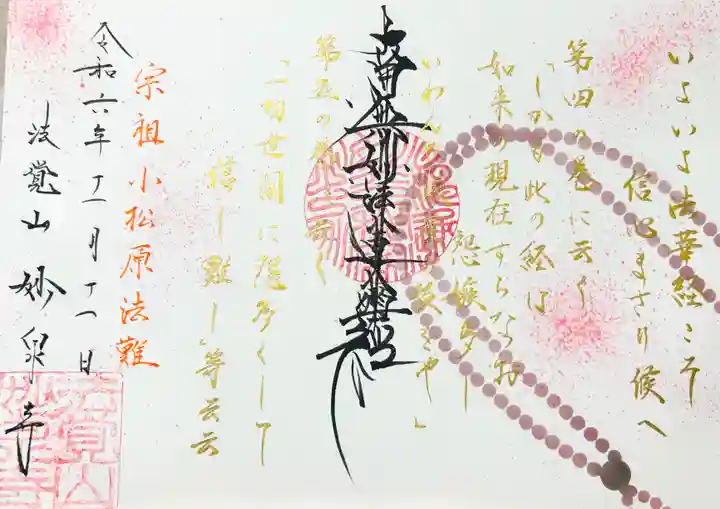 いよいよ法華経こそ
信心まさり候へ
第四の巻に云く
「しかも此の経は
如来の現在すらなお
怨嫉多し
いわんや滅度の後をや」
第五の巻に云く
「一切世間に怨多くして
信じ難し」等云云
南無妙法蓮華経
宗祖小松原法難
令和六年十一月十一日
法覚山 妙泉寺